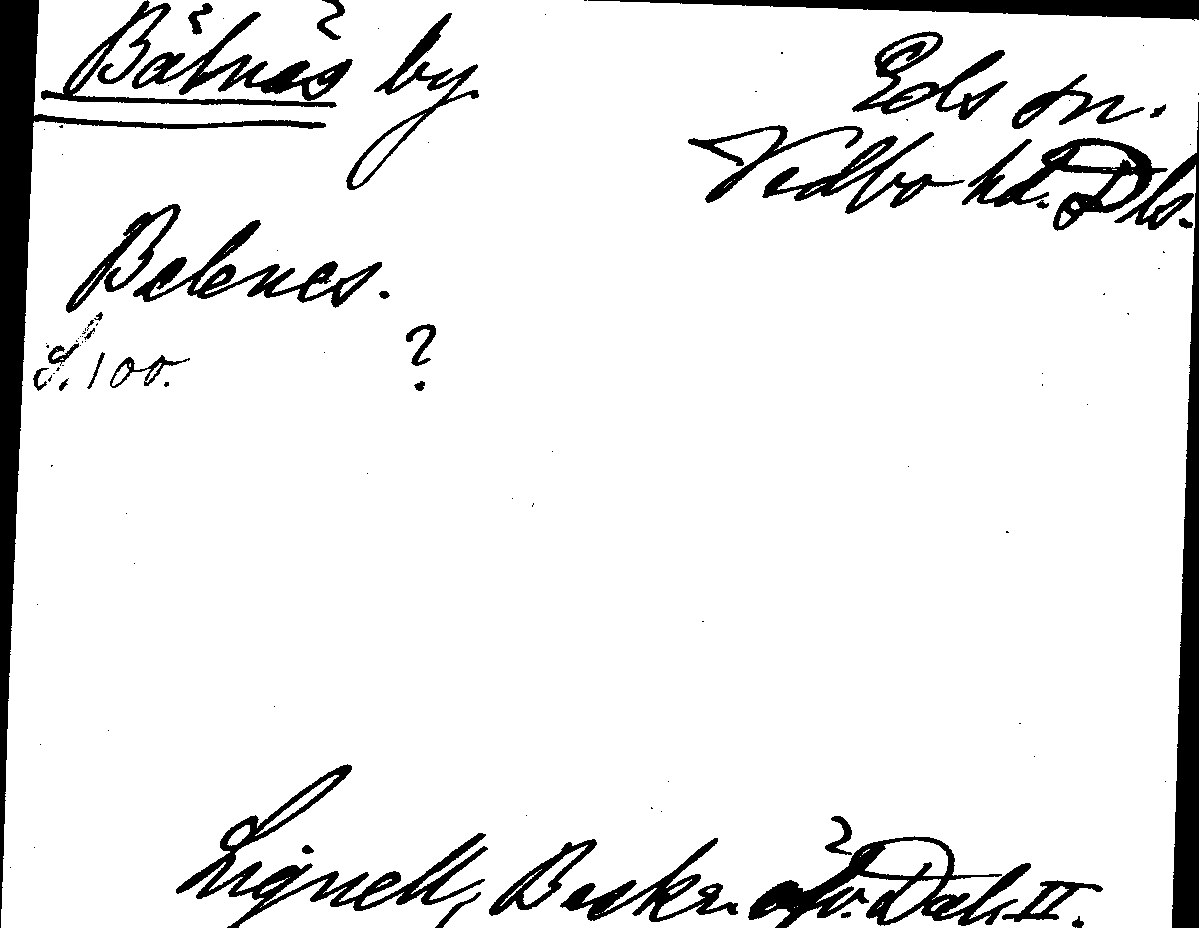 Bälnäs by.
Eds sn.
Vedbo hd. Dls.
Belenes.
S. 100. ?
Lignell, Beskr. öfv. Dal. II.